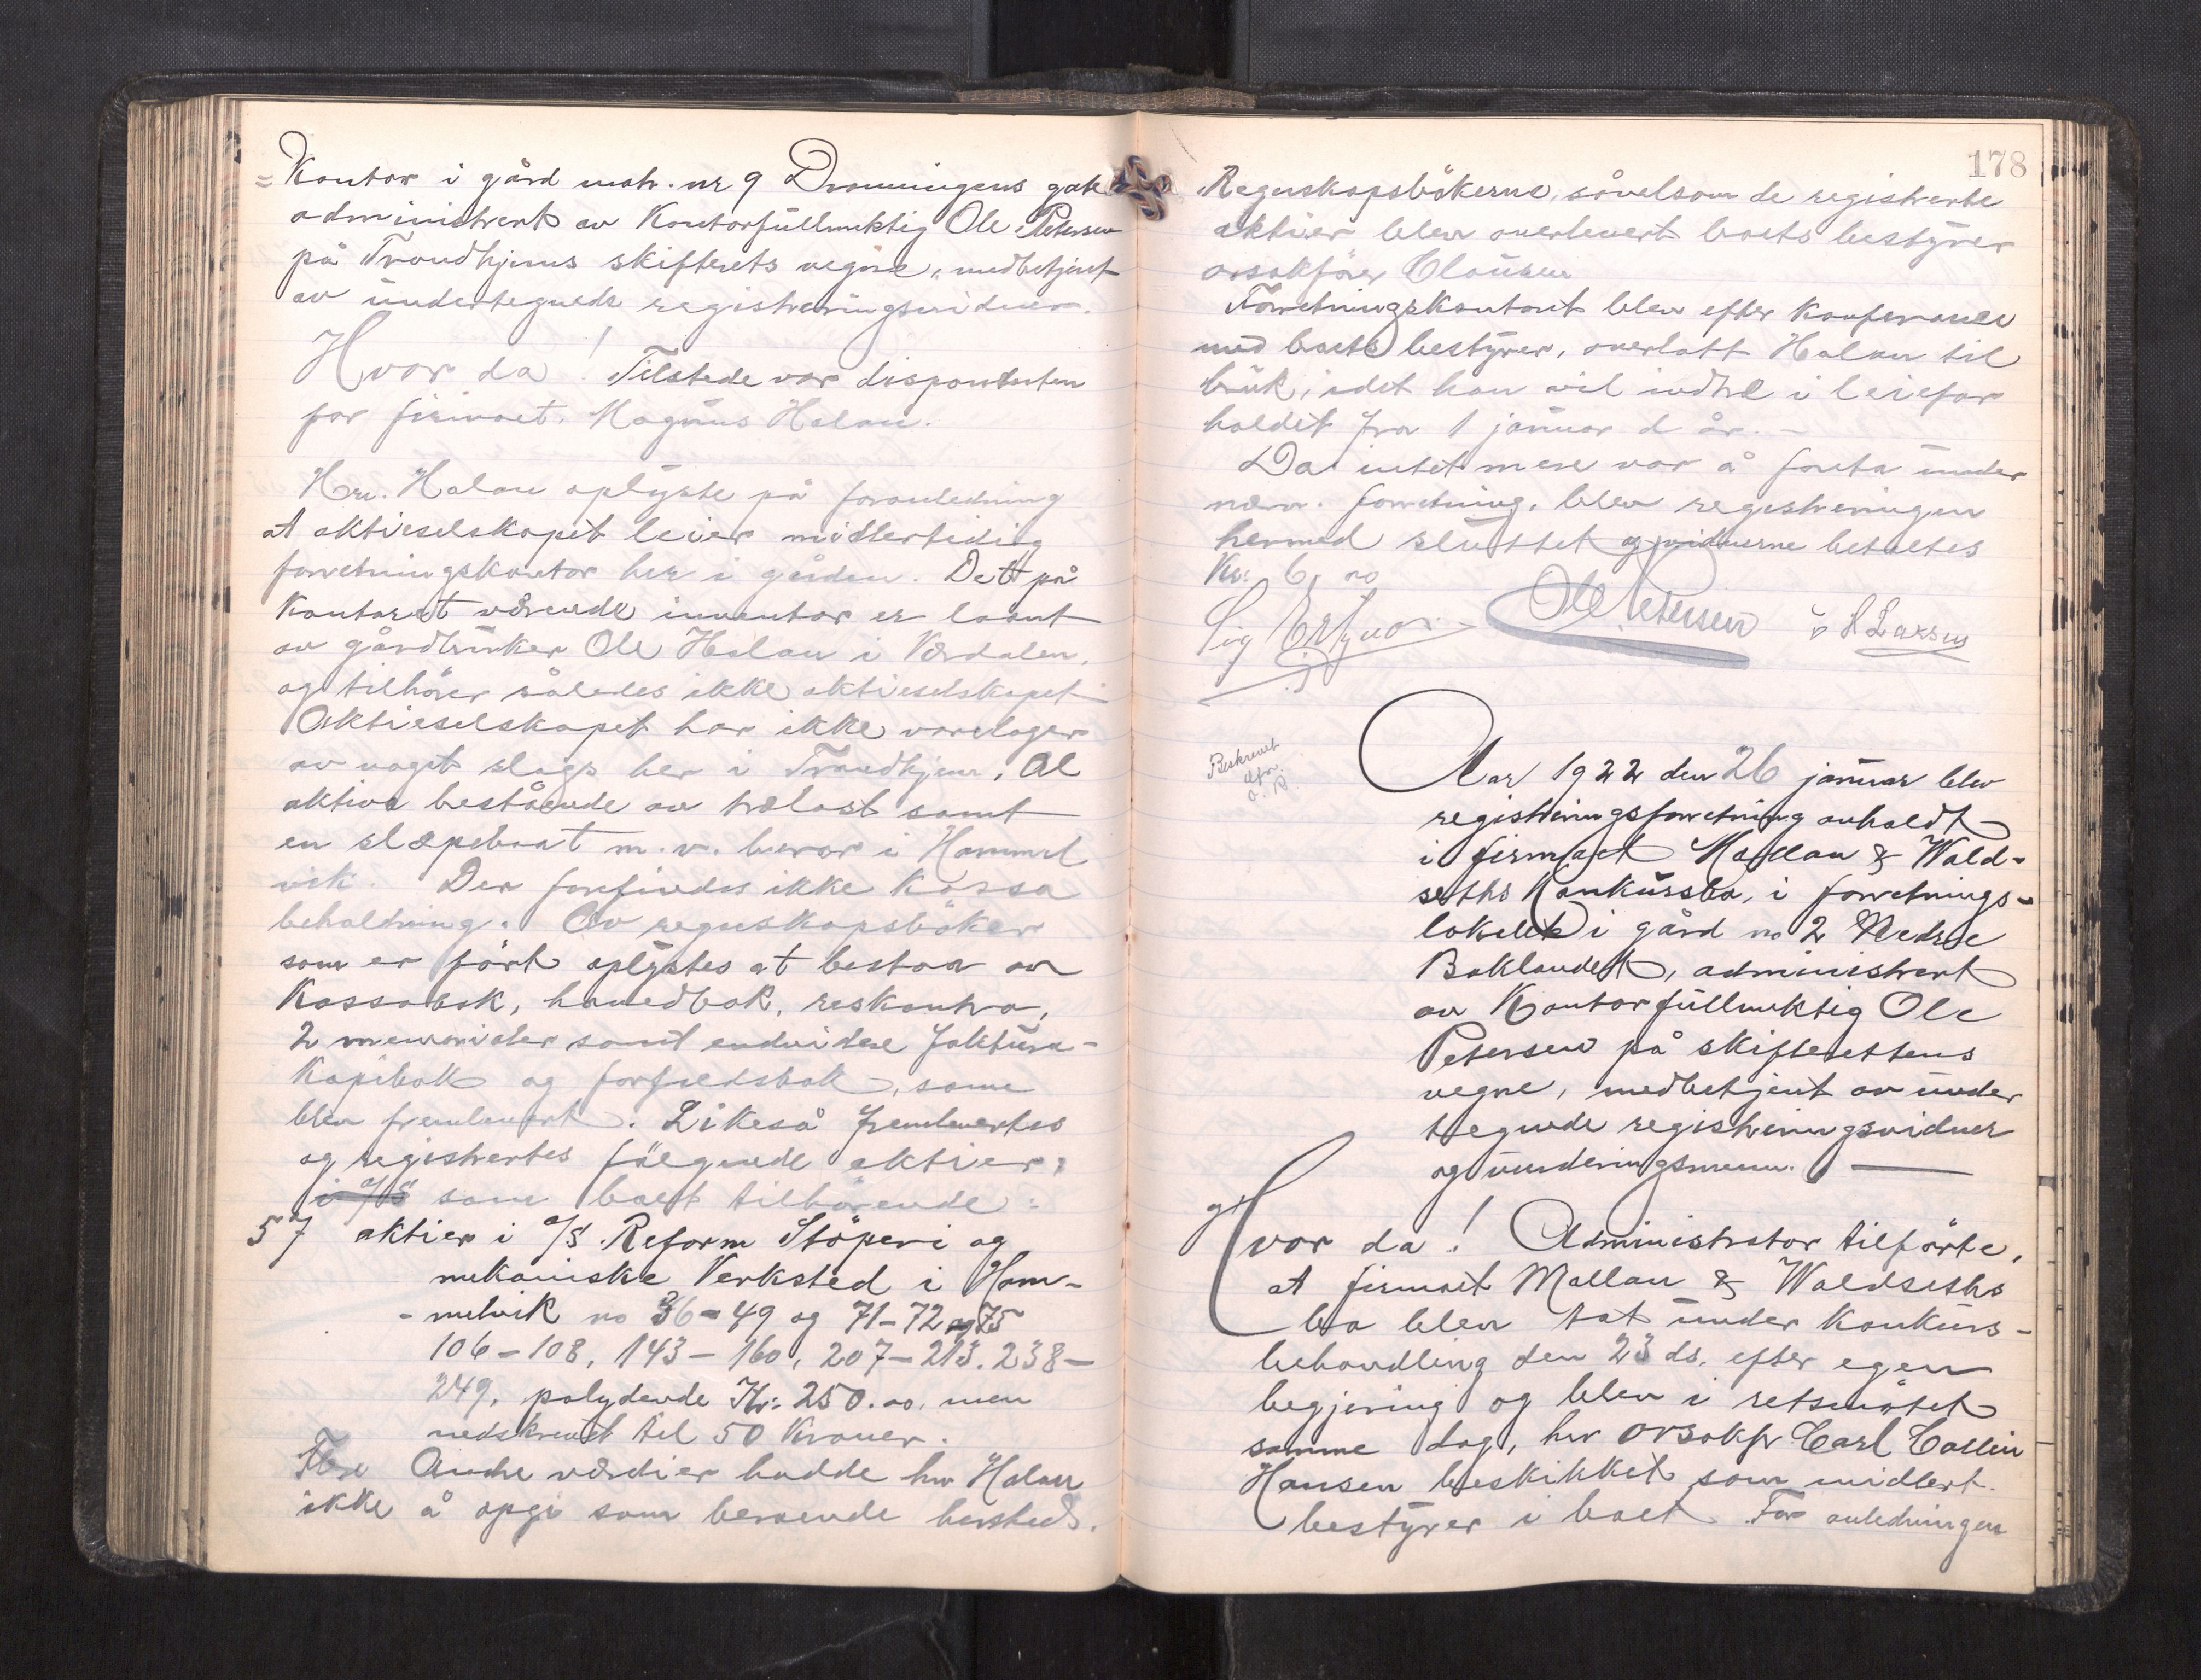 = Kontor i gård matr. nr 9 Dronningens gate
administrert av Kontorfullmektig Ole Petersen
på Trondhjems skifterets vegne, medbetjent
av undertegnede registreringsvidner.
Hvor da! Tilstede var disponenten
for firmaet, Magnus Halan.
Hr. Halan oplyste på foranledning
at aktieselskapet leier midlertidig
forretningskontor her i gården. Det på
Kontoret værende inventar er laant
av gårdbruker Ole Halan i Værdalen,
og tilhører således ikke aktieselskapet
Aktieselskapet har ikke varelager
av noget slags her i Trondhjem. Al
aktiva bestående av trælast samt
en slæpebaat m.v. beror i Hommel
vik. Der forefindes ikke Kassa
behaldning. Av regnskapsbøker
som er ført oplystes at bestaa av
Kassabok, hovedbok, reskontro,
2 memorialer samt endvidere faktura-
Kopibok og forfaldsbok, some
blev fremlevert. Likeså fremlevertes
og registrertes følgende aktier:
i a/s som boet tilhørende:
57 aktier i a/s Reform Støperi og
mekaniske Verksted i Hom-
- melvik no 36-49 og 71-72 og 75
106-108, 143-160, 207-213. 238-
249, palydende Kr: 250.00, men
nedskrevet til 50 Kroner.
Flere Andre værdier hadde hr Halan
ikke å opgi som beroende hersteds.
178
Regnskapsbøkerne, såvelsom de registrerte
aktier blev overlevert boets bestyrer
orsakfører Clausen
Forretningskontoret blev efter Konferance
med boets bestyrer, overlatt Halan til
bruk, idet han vil indtre i leiefor
holdet fra 1 januar d år. -
Da intet mere var å foreta under
nærv. forretning, blev registreringen
hermed sluttet og vidnerne betaltes
Kr: 6,00
Ole Petersen
Larsen
Beskrevet
O.P.
Aar 1922 den 26 januar blev
registreringsforretning avholdt
i firmaet Mallau & Wald-
seths Konkursbo, i forretnings-
lokalet i gård no 2 Nedre
Baklandet, administrert
av Kontorfullmektig Ole
Petersen på skifterettens
vegne, medbetjent av under
tegnede registreringsvidner
og vurderingsmenn. —
Hvor da! Administrator tilførte,
at firmaet Mallau & Waldseths
bo blev tat under Konkurs-
behandling den 23 ds. efter egen
begjæring og blev i retsmøtet
samme dag, hr orsakfr Carl Collin
Hansen beskikket som midlert.
bestyrer i boet For anledningen